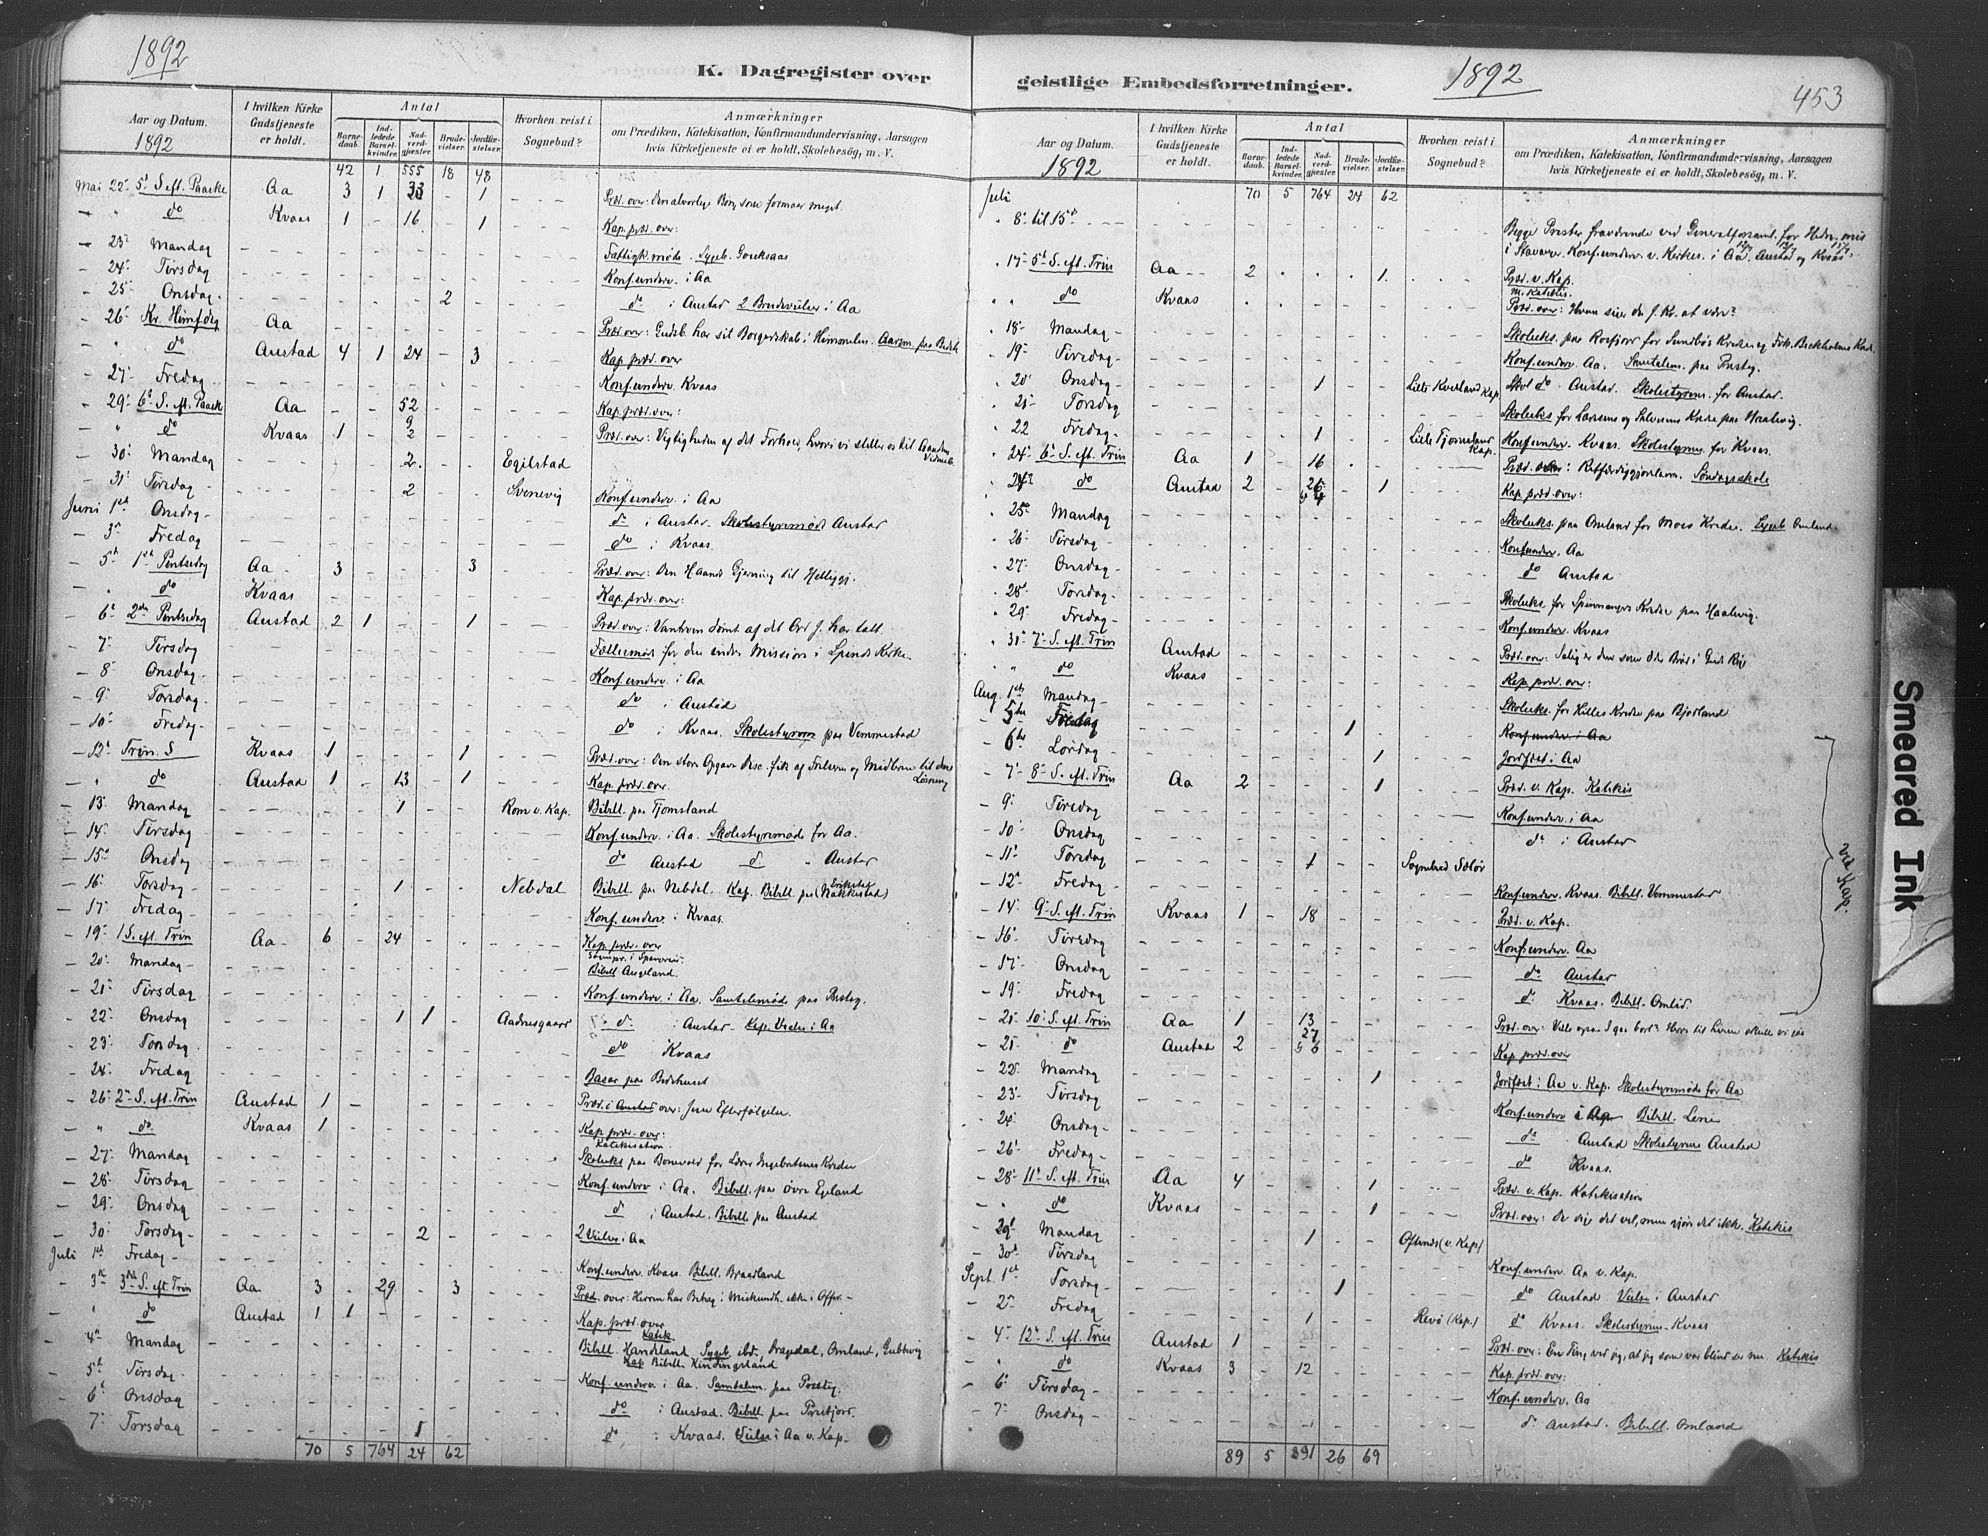 1892
K. Dagregister over
Aar og Datum.
1892
I hvilken Kirke Gudstjeneste er holdt.
Antal
Barnedaab.
Indledede Barselkvinder.
Nadverdgjester.
Brudevielser.
Jordfæstelser.
Hvorhen reist i Sognebud?
Anmærkninger
om Prædiken, Katekisation, Konfirmandundervisning, Aarsagen
hvis Kirketjeneste ei er holdt, Skolebesög, m. V.
42 1 555 18 48
Mai 22 5 S. eft. Paaske Aa 3 1 33 - 1 Præd. over:
" do Kvaas 1 - 16 - 1 Kap. præd. over:
- 23 Mandag Fattigk. møde. Sygeb.
- 24 Tirsdag Konf. underv. i Aa
- 25 Onsdag 2 do i Austad 2 Brudevielser i Aa
- 26 Kr. Himf. dg Aa Præd. over: Guds b. har sit Borgerskab i Himmelen.
" do Austad 4 1 24 - 3 Kap præd. over
- 27 Fredag Konf. underv. Kvaas
- 29 6 S. eft. Paask Aa - - 52 Kap. præd. over:
" do Kvaas 1 - 2 Præd. over: Vigtigheden af det Forhold, hvori vi stilles os til Aandens Vidnesb.
- 30 Mandag 2 Egilstad
- 31 Tirsdag 2 Svenevig Konf. underv. i Aa
Juni 1 Onsdag do i Austad. Skolestyremøde Austad
- 3 Fredag do i Kvaas
- 5 1 Pintsedag Aa 3 - - - 3 Præd. over: Den Haands Gjerning til Helliggj.
" do Kvaas Kap. præd. over:
- 6 2den Pintsedag Austad 2 1 - - 1 Præd. over: Vantroen dømt af det Ord J. har talt.
- 7 Tirsdag Fællesmøde for den indre Mission i Spinds Kirke
- 8 Onsdag Konf. underv. i Aa
- 9 Torsdag do i Austad
- 10 Fredag do i Kvaas. Skolestyrem paa Vemmestad
- 12 Trin. S Kvaas 1 - - - 1 Præd. over:
" do Austad 1 - 13 - 1 Kap. præd. over.
- 13 Mandag 1 Rom v. Kap. Bibell. paa Tjomsland
- 14 Tirsdag Konf. underv. i Aa. Skolestyremøde for Aa.
- 15 Onsdag do Austad do " Austad
- 16 Torsdag 1 Nebdal Bibell. paa Nebdal. Kap. Bibell. paa
- 17 Fredag Konf. underv. i Kvaas
- 19 1 S. eft. Trin Aa 6 - 24 Kap. præd. over
- 20 Mandag Bibell Augland.
- 21 Tirsdag Konf. underv. i Aa. Samtalemøde paa Presteg.
- 22 Onsdag 1 1 Aadnesgaard do i Austad. Kap. Vielse i Aa
- 23 Torsdag do Kvaas
- 24 Fredag Basar paa Bedehuset
- 26 2 S. eft. Trin Austad 1 Præd. i Austad over: Jesu Efterfølgelse.
" do Kvaas 1 Kap præd. over: Katekisation.
- 27 Mandag Skoleeks paa
- 28 Tirsdag Konf. underv i Aa. Bibell. paa øvre Egland
- 29 Onsdag do i Austad. Bibell paa Austad
- 30 Torsdag 2 2 Vielser i Aa
Juli 1 Fredag Konf. underv. Kvaas Bibell. Braadland
- 3 3 S. eft Trin Aa 3 - 29 - 3 Præd. over: Herren har Behag i Miskundh. ikke i Offer.
" do Austad 1 1 Kap. præd. over Katek
- 4 Mandag Bibell. Handeland Sygeb. ibd., Dragedal, Omland,
Kap Bibell. Kindingsland
- 5 Tirsdag Konf. underv. i Aa. Samtalem. paa Presteg.
- 6 Onsdag do i Austad. Bibell paa
- 7 Torsdag 1 do i Kvaas. Vielse i Aa v. Kap.
70 5 764 24 62
geistlige Embedsforretninger.
1892
453
Aar og Datum.
1892
I hvilken Kirke Gudstjeneste er holdt.
Antal
Barnedaab.
Indledede Barselkvinder.
Nadverdgjester.
Brudevielser.
Jordfæstelser.
Hvorhen reist i Sognebud?
Anmærkninger
om Prædiken, Katekisation, Konfirmandundervisning, Aarsagen
hvis Kirketjeneste ei er holdt, Skolebesög, m. V.
Juli 70 5 764 24 62
" 8 til 15 Begge Prester fraværende ved Generalforsaml. for Hedn. mis
i Stavanger. Konf. underv. v. Kirkes. i Aa, Austad og Kvaas
" 17 5 S. eft. Trin Aa 2 . . . 1 Præd. v. Kap. m. Katekis.
" " do Kvaas Præd. over: Hvem siger du J. Kr. at være?
" 18 Mandag Skoleeks. paa Rosfjord for Sundbøs Kreds og
" 19 Tirsdag Konf. underv. Aa. Samtalem. paa Presteg.
" 20 Onsdag 1 Lille Kvelland Kap do Austad. Skolestyrem. for Austad.
" 21 Torsdag Skoleeks for Larsens og
" 22 Fredag 1 Lille Tjomsland Kap. Konf. underv. Kvaas. Skolestyrem for Kvaas.
" 24 6 S. eft. Trin Aa 1 - 16 Præd. over: Retfærdiggjørelsen. Søndagsskole
" 24 do Austad 2 - 26 - 1 Kap. præd. over:
" 25 Mandag Skoleeks. paa Omland for Moes Kreds. Sygeb Omland
" 26 Tirsdag Konf. underv. Aa
" 27 Onsdag do Austad
" 28 Torsdag Skoleeks for
" 29 Fredag Konf. underv. Kvaas
" 31 7 S. eft. Trin Austad Præd. over: Salig er den som æder Brød i Guds Rige
" " do Kvaas Kap. præd. over:
Aug. 1 Mandag Skoleeks. for Hilles Kreds paa Bjørland
- 5 Fredag 1 Konf. underv. i Aa
- 6 Lørdag 1 Jordfæst. i Aa
- 7 8 S. eft. Trin Aa 2 - - - 1 Præd. v. Kap. Katekis
- 9 Tirsdag Konf. underv. i Aa
- 10 Onsdag do i Austad
- 11 Torsdag 1 Sognebud Sæløe
- 12 Fredag Konf. underv. Kvaas. Bibell. Vemmestad
- 14 9 S. eft. Trin Kvaas 1 - 18 Præd. v. Kap.
- 16 Tirsdag Konf. underv. Aa
- 17 Onsdag do Austad
- 19 Fredag do Kvaas. Bibell. Omlid
ved Kap.
- 21 10 S. eft. Trin Aa 1 - 13 Præd. over: Ville ogsaa I gaa bort? Herre til hvem skulle vi gaa
- 21 do Austad 2 - 27 Kap præd. over
- 22 Mandag 1 Jordfæst i Aa v. Kap. Skolestyremøde for Aa
- 23 Tirsdag Konf. underv i Aa Bibell. Lene
- 24 Onsdag do Austad Skolestyrem Austad
- 26 Fredag do Kvaas.
- 28 11 S. eft. Trin Aa 4 - - - 1 Præd. v. Kap. Katekisation
- " do Kvaas 1 Præd. over: De sige det vel, men gjør det ikke. Katekis
- 29 Mandag 1 Oftenes (v. Kap)
- 30 Tirsdag Konf. underv. Aa v. Kap.
Sept. 1 Torsdag 1 do Austad Vielse i Austad
- 2 Fredag 1 Revø (Kap.) do Kvaas. Skolestyrem. Kvaas
- 4 12 S. eft. Trin Austad 1 Præd. over: En Ting ved jeg, at jeg som var blind ser nu. Katekis
- " do Kvaas 3 - 12 Kap. præd. over:
- 6 Tirsdag Konf. underv. Aa
- 7 Onsdag do Austad. Bibell. Omland
89 5 891 26 69
Smeared Ink